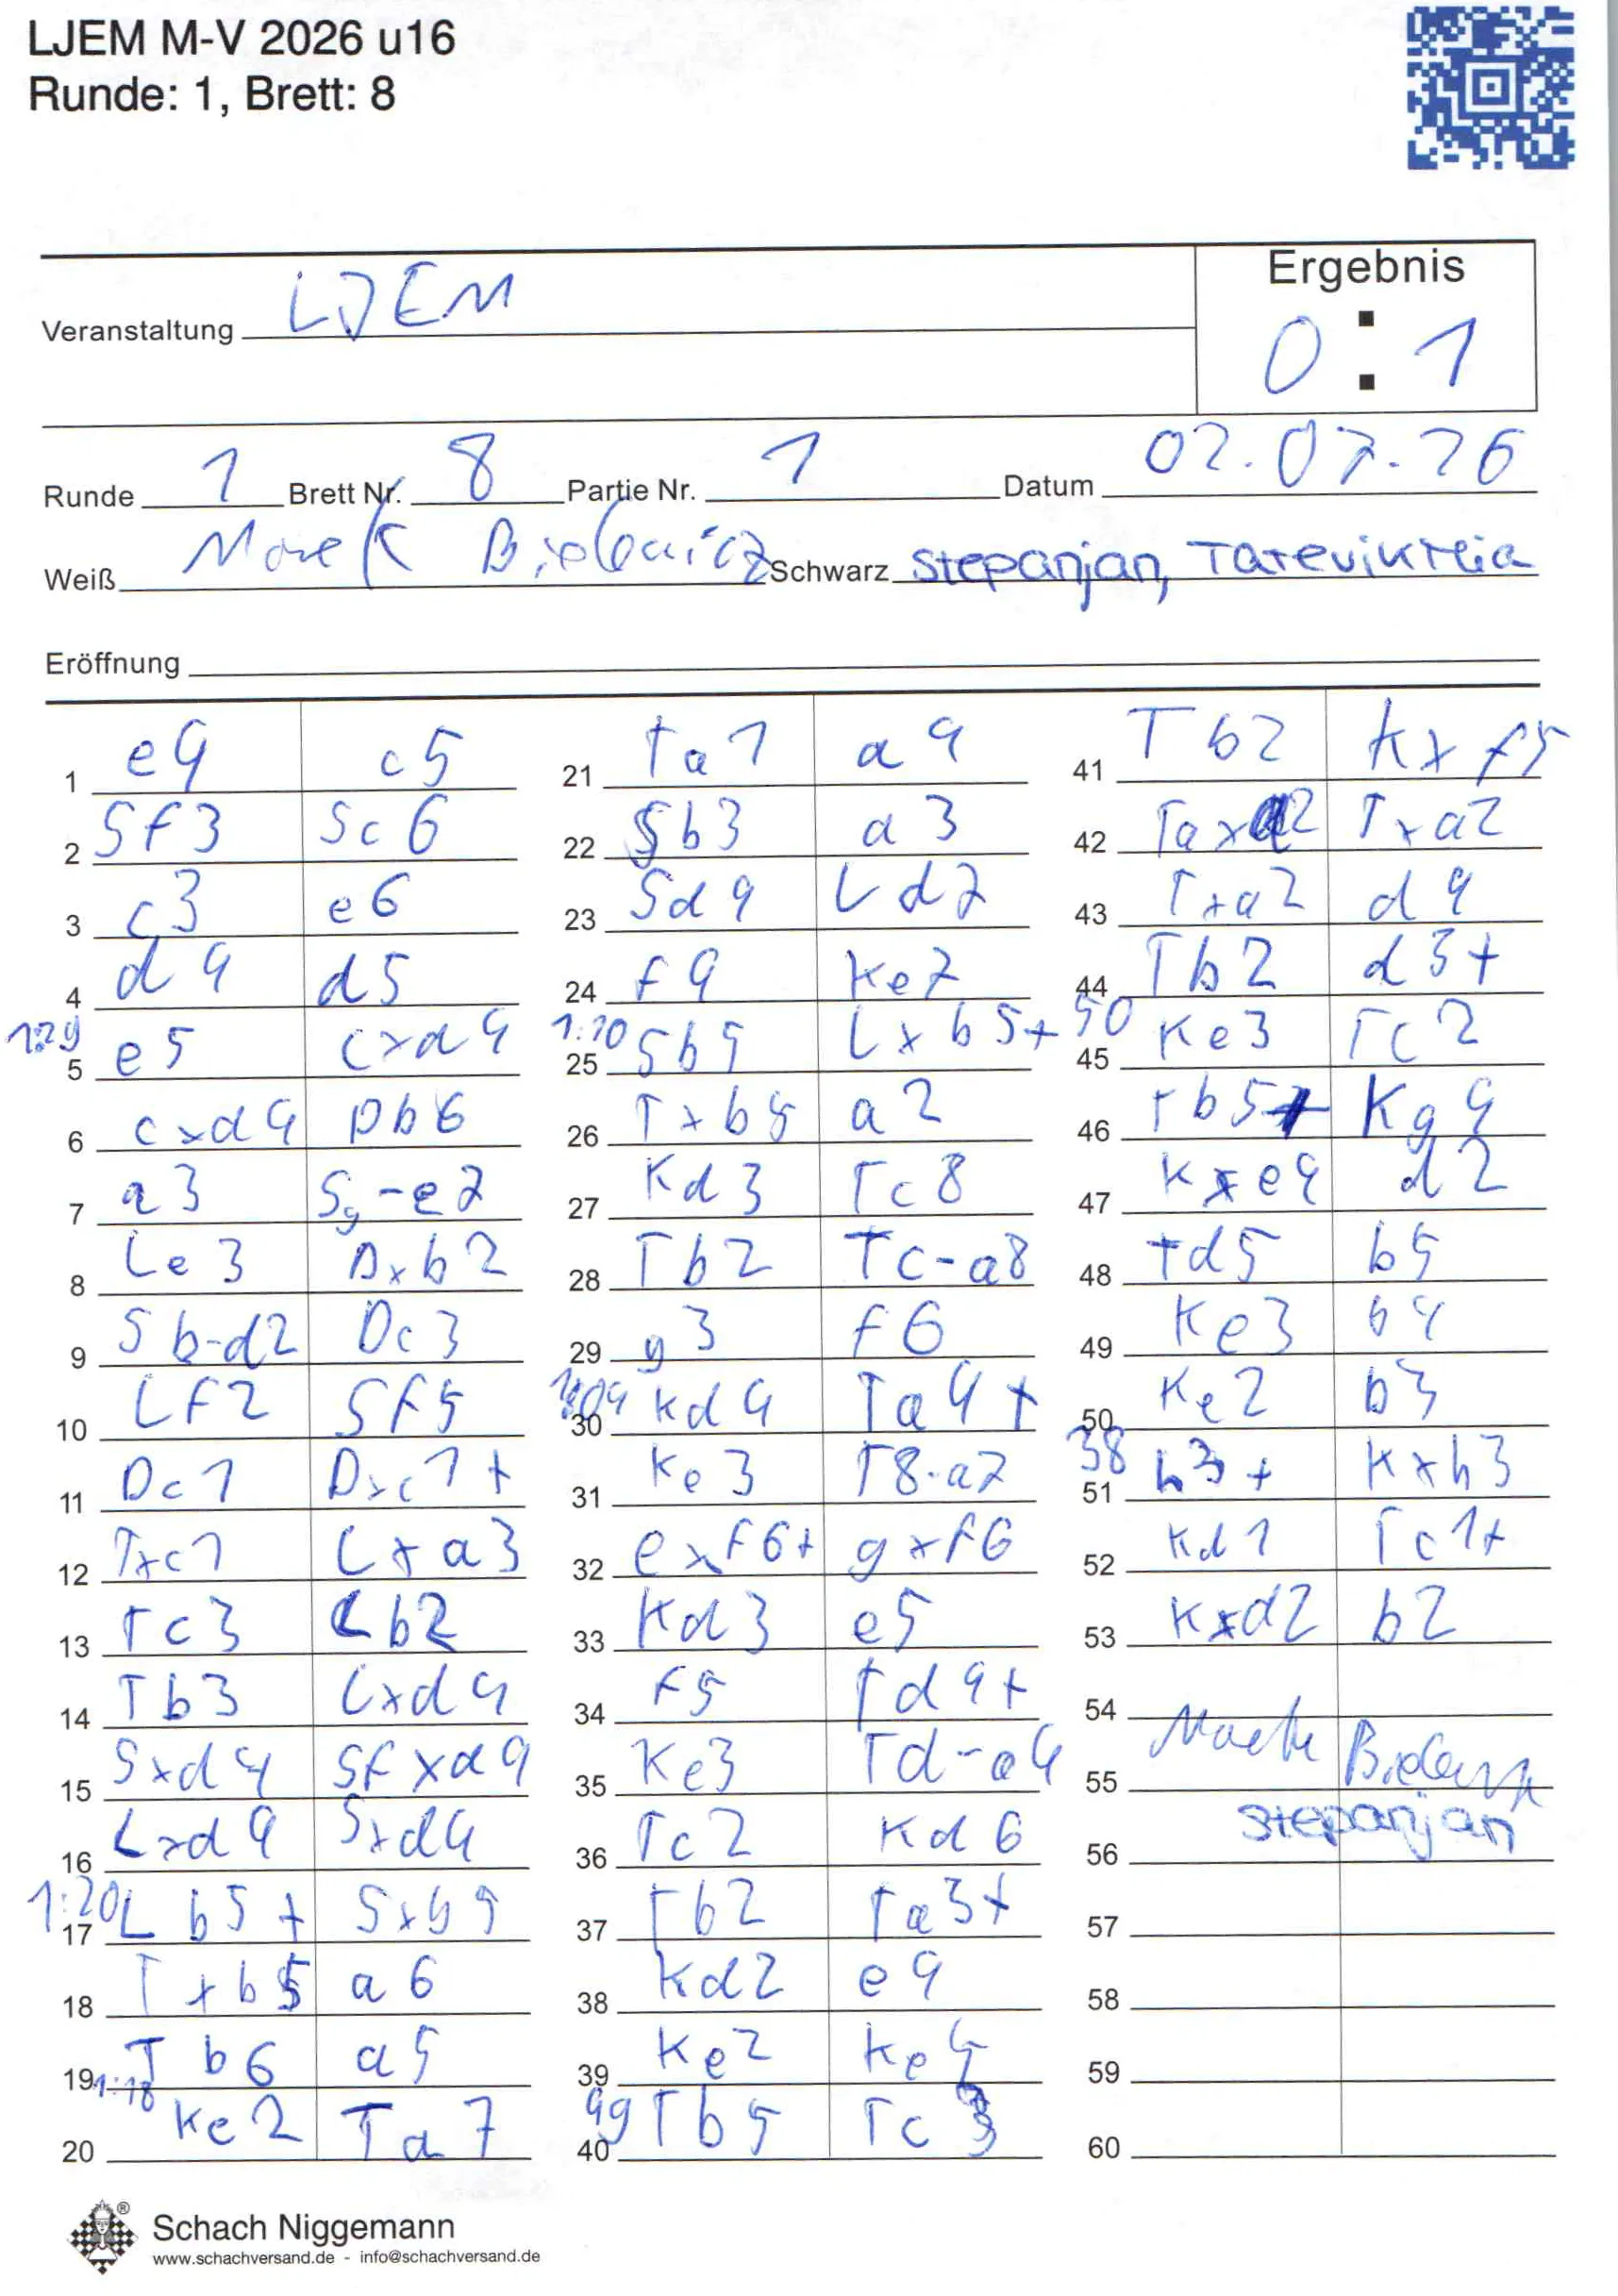 LJEM M-V 2026 u16
Runde: 1, Brett: 8
Ergebnis
Veranstaltung LJEM
0 : 1
Runde 1 Brett Nr. 8 Partie Nr. 1 Datum 02.07.26
Weiß Schwarz Stepanjan,
Eröffnung
1 e4 c5 21 Ta1 a4 41 Tb2 Kxf5
2 Sf3 Sc6 22 Sb3 a3 42 Taxa2 Txa2
3 c3 e6 23 Sd4 Ld7 43 Txa2 d4
4 d4 d5 24 f4 Ke7 44 Tb2 d3+
1:29 5 e5 cxd4 1:10 25 Sb5 Lxb5+ 50 45 Ke3 Tc2
6 cxd4 Db6 26 Txb5 a2 46 Tb5+ Kg4
7 a3 Sg-e7 27 Kd3 Tc8 47 Kxe4 d2
8 Le3 Dxb2 28 Tb2 Tc-a8 48 Td5 b5
9 Sb-d2 Dc3 29 g3 f6 49 Ke3 b4
10 Lf2 Sf5 30 Kd4 Ta4+ 50 Ke2 b3
11 Dc1 Dxc1+ 31 Ke3 T8-a7 38 51 h3+ Kxh3
12 Txc1 Lxa3 32 exf6+ gxf6 52 Kd1 Tc1+
13 Tc3 Lb2 33 Kd3 e5 53 Kxd2 b2
14 Tb3 Lxd4 34 f5 Td4+ 54
15 Sxd4 Sfxd4 35 Ke3 Td-a4 55
16 Lxd4 Sxd4 36 Tc2 Kd6 56 Stepanjan
1:20 17 Lb5+ Sxb5 37 Tb2 Ta3+ 57
18 Txb5 a6 38 Kd2 e4 58
19 Tb6 a5 39 Ke2 Ke5 59
1:18 20 Ke2 Ta7 49 40 Tb5 Tc3 60
Schach Niggemann
www.schachversand.de - info@schachversand.de